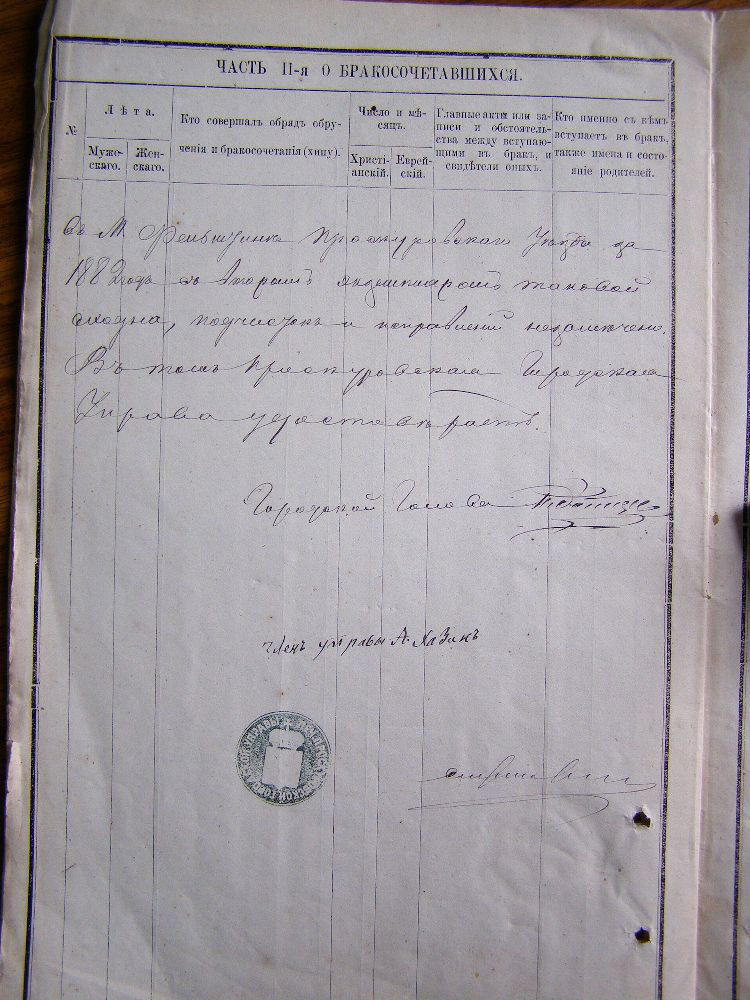 ЧАСТЬ II-я О БРАКОСОЧЕТАВШИХСЯ.
№
Лѣта.
Муже-
скаго.
Жен-
скаго.
Кто совершалъ обрядъ обру-
ченія и бракосочетанія (хипу).
Число и мѣ-
сяцъ.
Христі-
анскій.
Еврей-
скій.
Главные акты или за-
писи и обстоятель-
ства между вступаю-
щими въ бракъ, и
свидѣтели оныхъ.
Кто именно съ кѣмъ
вступаетъ въ бракъ,
также имена и состо-
яніе родителей.
въ М. Фельштинѣ Проскуровскаго Уѣзда за
1882 годъ съ вторымъ экземпляромъ таковой
сходна, подчистокъ и исправленій незаключено.
Въ томъ Проскуровская Городская
Управа удостовѣряетъ.
Городской Голова
Членъ управы А. Хазинъ